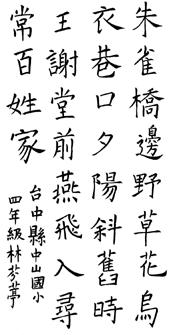 朱雀橋邊野草花烏
衣巷口夕陽斜舊時
王謝堂前燕飛入尋
常百姓家
台中縣中山國小
四年級